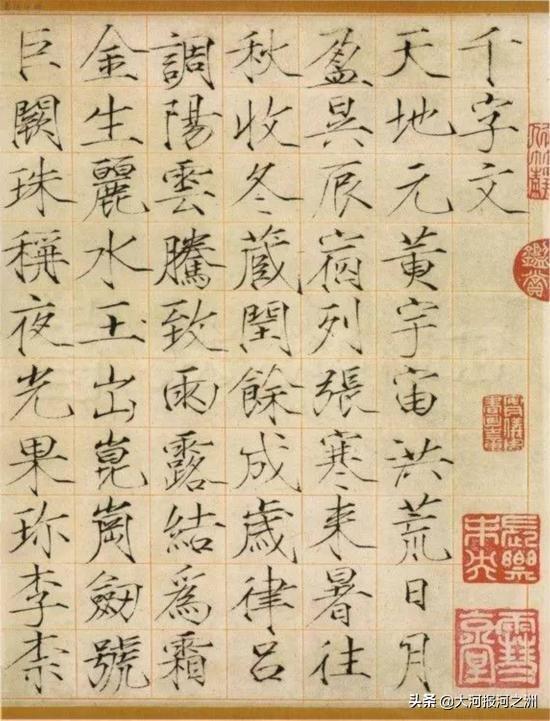 千字文
天地元黃宇宙洪荒日月
盈昃辰宿列張寒来暑往
秋收冬蔵閏餘成歲律呂
調陽雲騰致雨露結爲霜
金生麗水玉出崑崗劒號
巨闕珠稱夜光果珍李柰
鑑賞
長樂未央
头条 @大河报河之洲